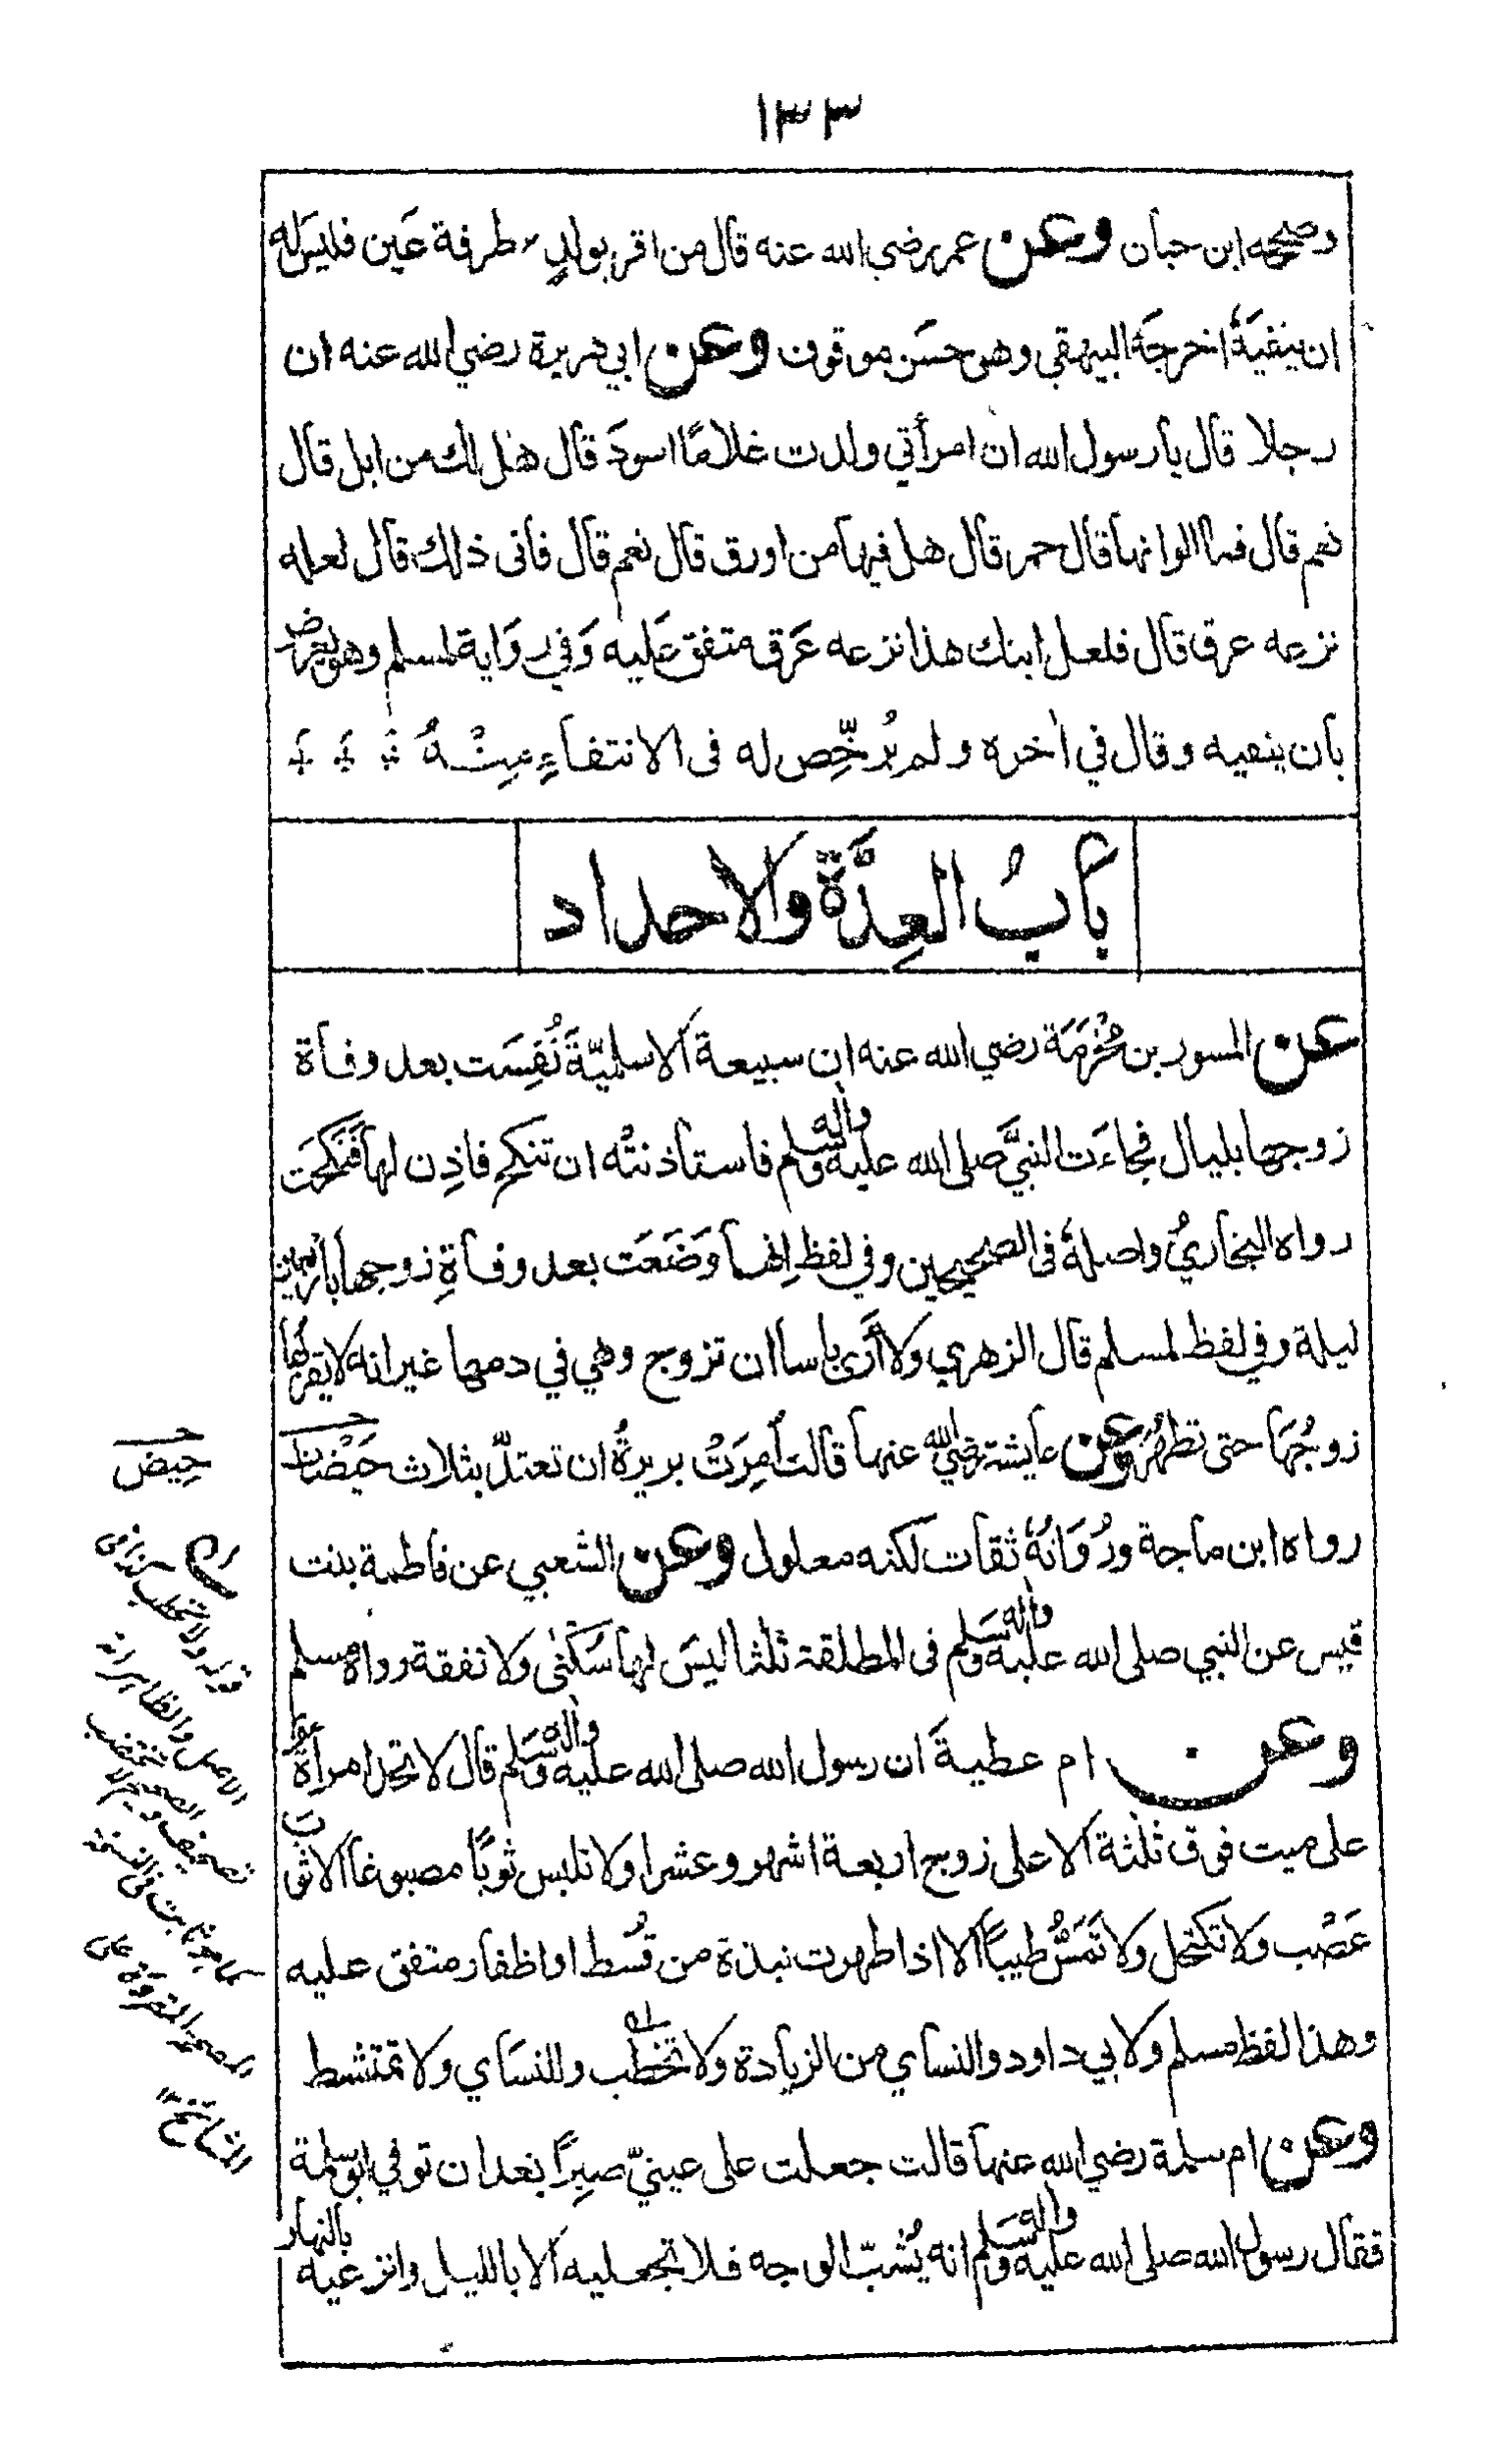 ١٣٣
وصححه ابن حبان وعن عمر رضي الله عنه قال من اقر بولدٍ طرفة عَين فليسَ له
ان ينفيَهُ اخرجَهُ البيهقي وهو حسَن موقوف وعن ابي هريرة رضي الله عنه ان
رجلا قال يا رسول الله ان امرأتي ولدت غلامًا اسودَ قال هل لك من ابل قال
نعم قال فما الوانها قال حمر قال هل فيها من اورق قال نعم قال فانى ذلك قال لعله
نزعه عرق قال فلعل ابنك هذا نزعه عَرق متفق عَليه وَفي روَاية لمسلم وهو يعرض
بان ينفيه وقال في اخره ولم يُرخِّص له فى الانتفاءِ مِنْهُ
بابُ العِدَّة والاحداد
عن المسور بن مَخْرَمَة رضي الله عنه ان سبيعة الاسلميّةَ نُفِسَت بعد وفاة
زوجها بليال فجاءَت النبيَّ صلى الله عليه واله وسلم فاستأذنتْه ان تنكح فاذِن لها فنَكَحَت
رواه البخاريُّ واصلهُ فى الصحيحين وفي لفظِ انها وَضَعَت بعد وفاةِ زوجها باربعين
ليلة وفي لفظ لمسلم قال الزهري ولا أرَى باسا ان تزوج وهي في دمها غير انه لا يقربُها
زوجُهَا حتى تطهُرَ وعن عايشة رضي الله عنها قالت اُمِرَتْ بريرةُ ان تعتدّ بثلاث حَيْضات
رواه ابن ماجة ورُوَاتُهُ ثقات لكنه معلول وعن الشعبي عن فاطمة بنت
قيس عن النبي صلى الله عليه واله وسلم فى المطلقة ثلثا ليسَ لها سُكْنٰى ولا نفقة رواه مسلم
وعن ام عطيةَ ان رسول الله صلى الله عليه واله وسلم قال لا تحد امراَة
على ميت فوق ثلٰثة الا على زوج اربعة اشهر وعشرا ولا تلبس ثوبًا مصبوغا الا ثوب
عَصْب ولا تكتحل ولا تَمَسُّ طيبًا الا اذا طهرت نبذة من قُسْط او اظفار متفق عليه
وهذا لفظ مسلم ولابي داود والنساي من الزيادة ولا تختطب وللنسَاي ولا تمتشط
وعن ام سلمة رضي الله عنها قالت جعلت على عينيّ صبِرًا بعد ان توفي ابو سلمة
فقال رسول الله صلى الله عليه واله وسلم انه يُشبّ الوجه فلا تجعليه الا بالليل وانزعيه بالنهار
حِيَض
قوله ولا تختطب كذا فى
الاصل والظاهر انه
تصحيف